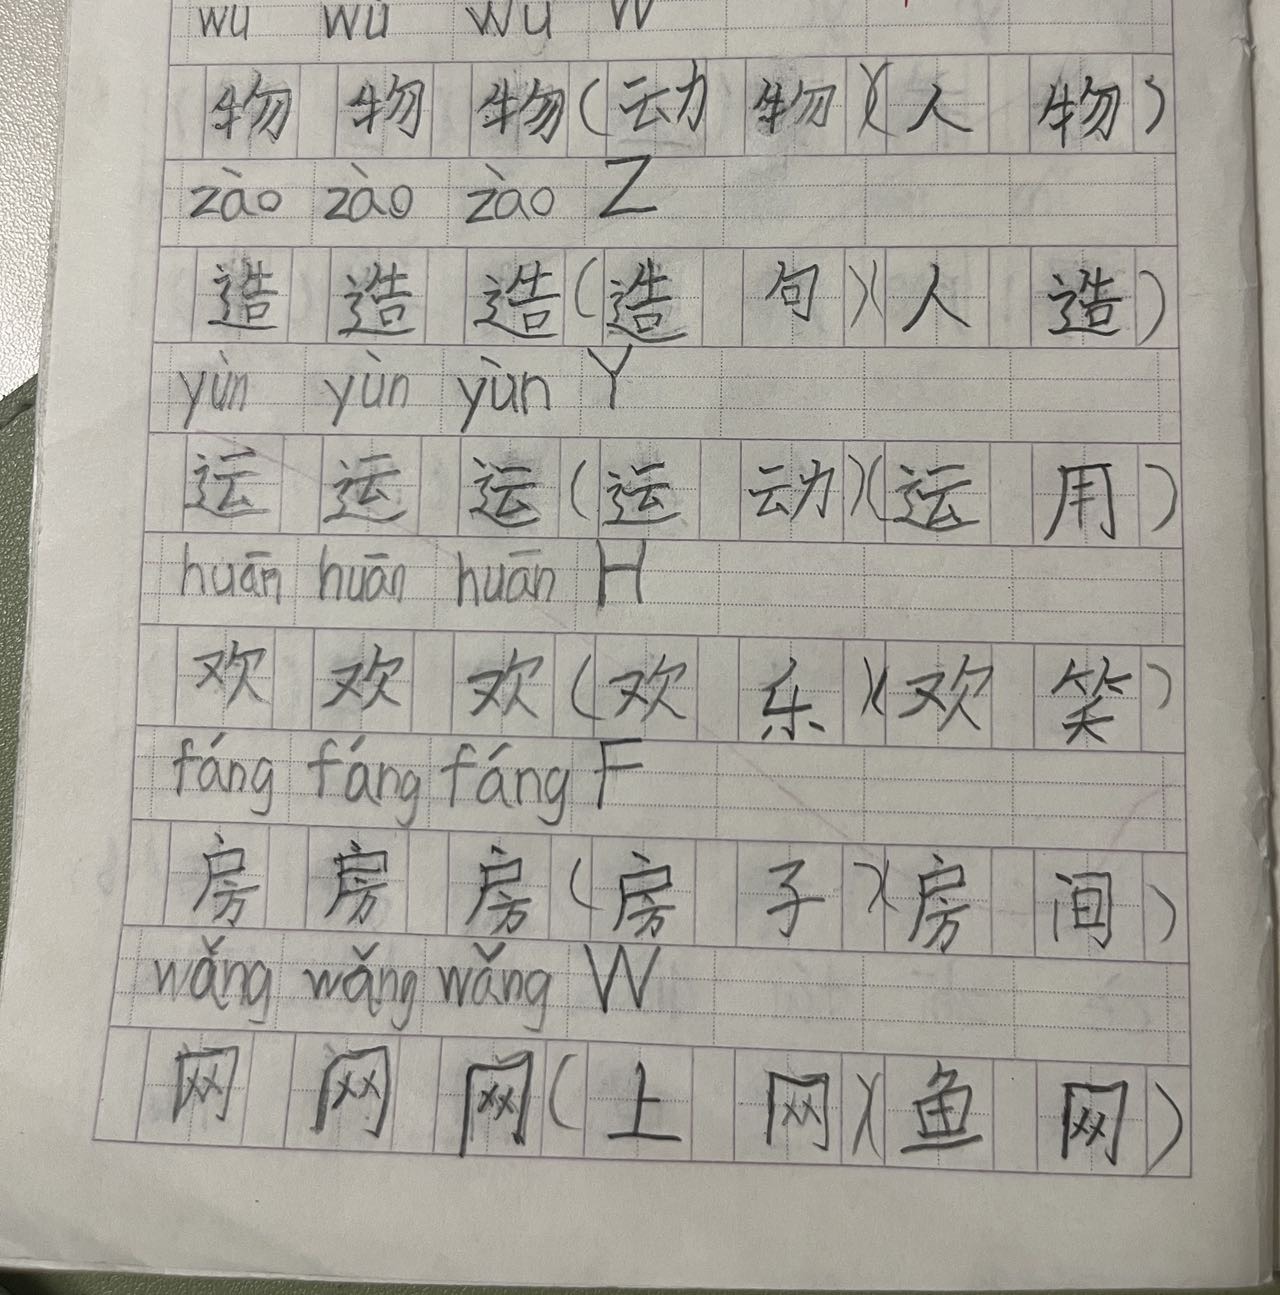 wù wù wù W
物 物 物(动 物)(人 物)
zào zào zào Z
造 造 造(造 句)(人 造)
yùn yùn yùn Y
运 运 运(运 动)(运 用)
huān huān huān H
欢 欢 欢(欢 乐)(欢 笑)
fáng fáng fáng F
房 房 房(房 子)(房 间)
wǎng wǎng wǎng W
网 网 网(上 网)(鱼 网)